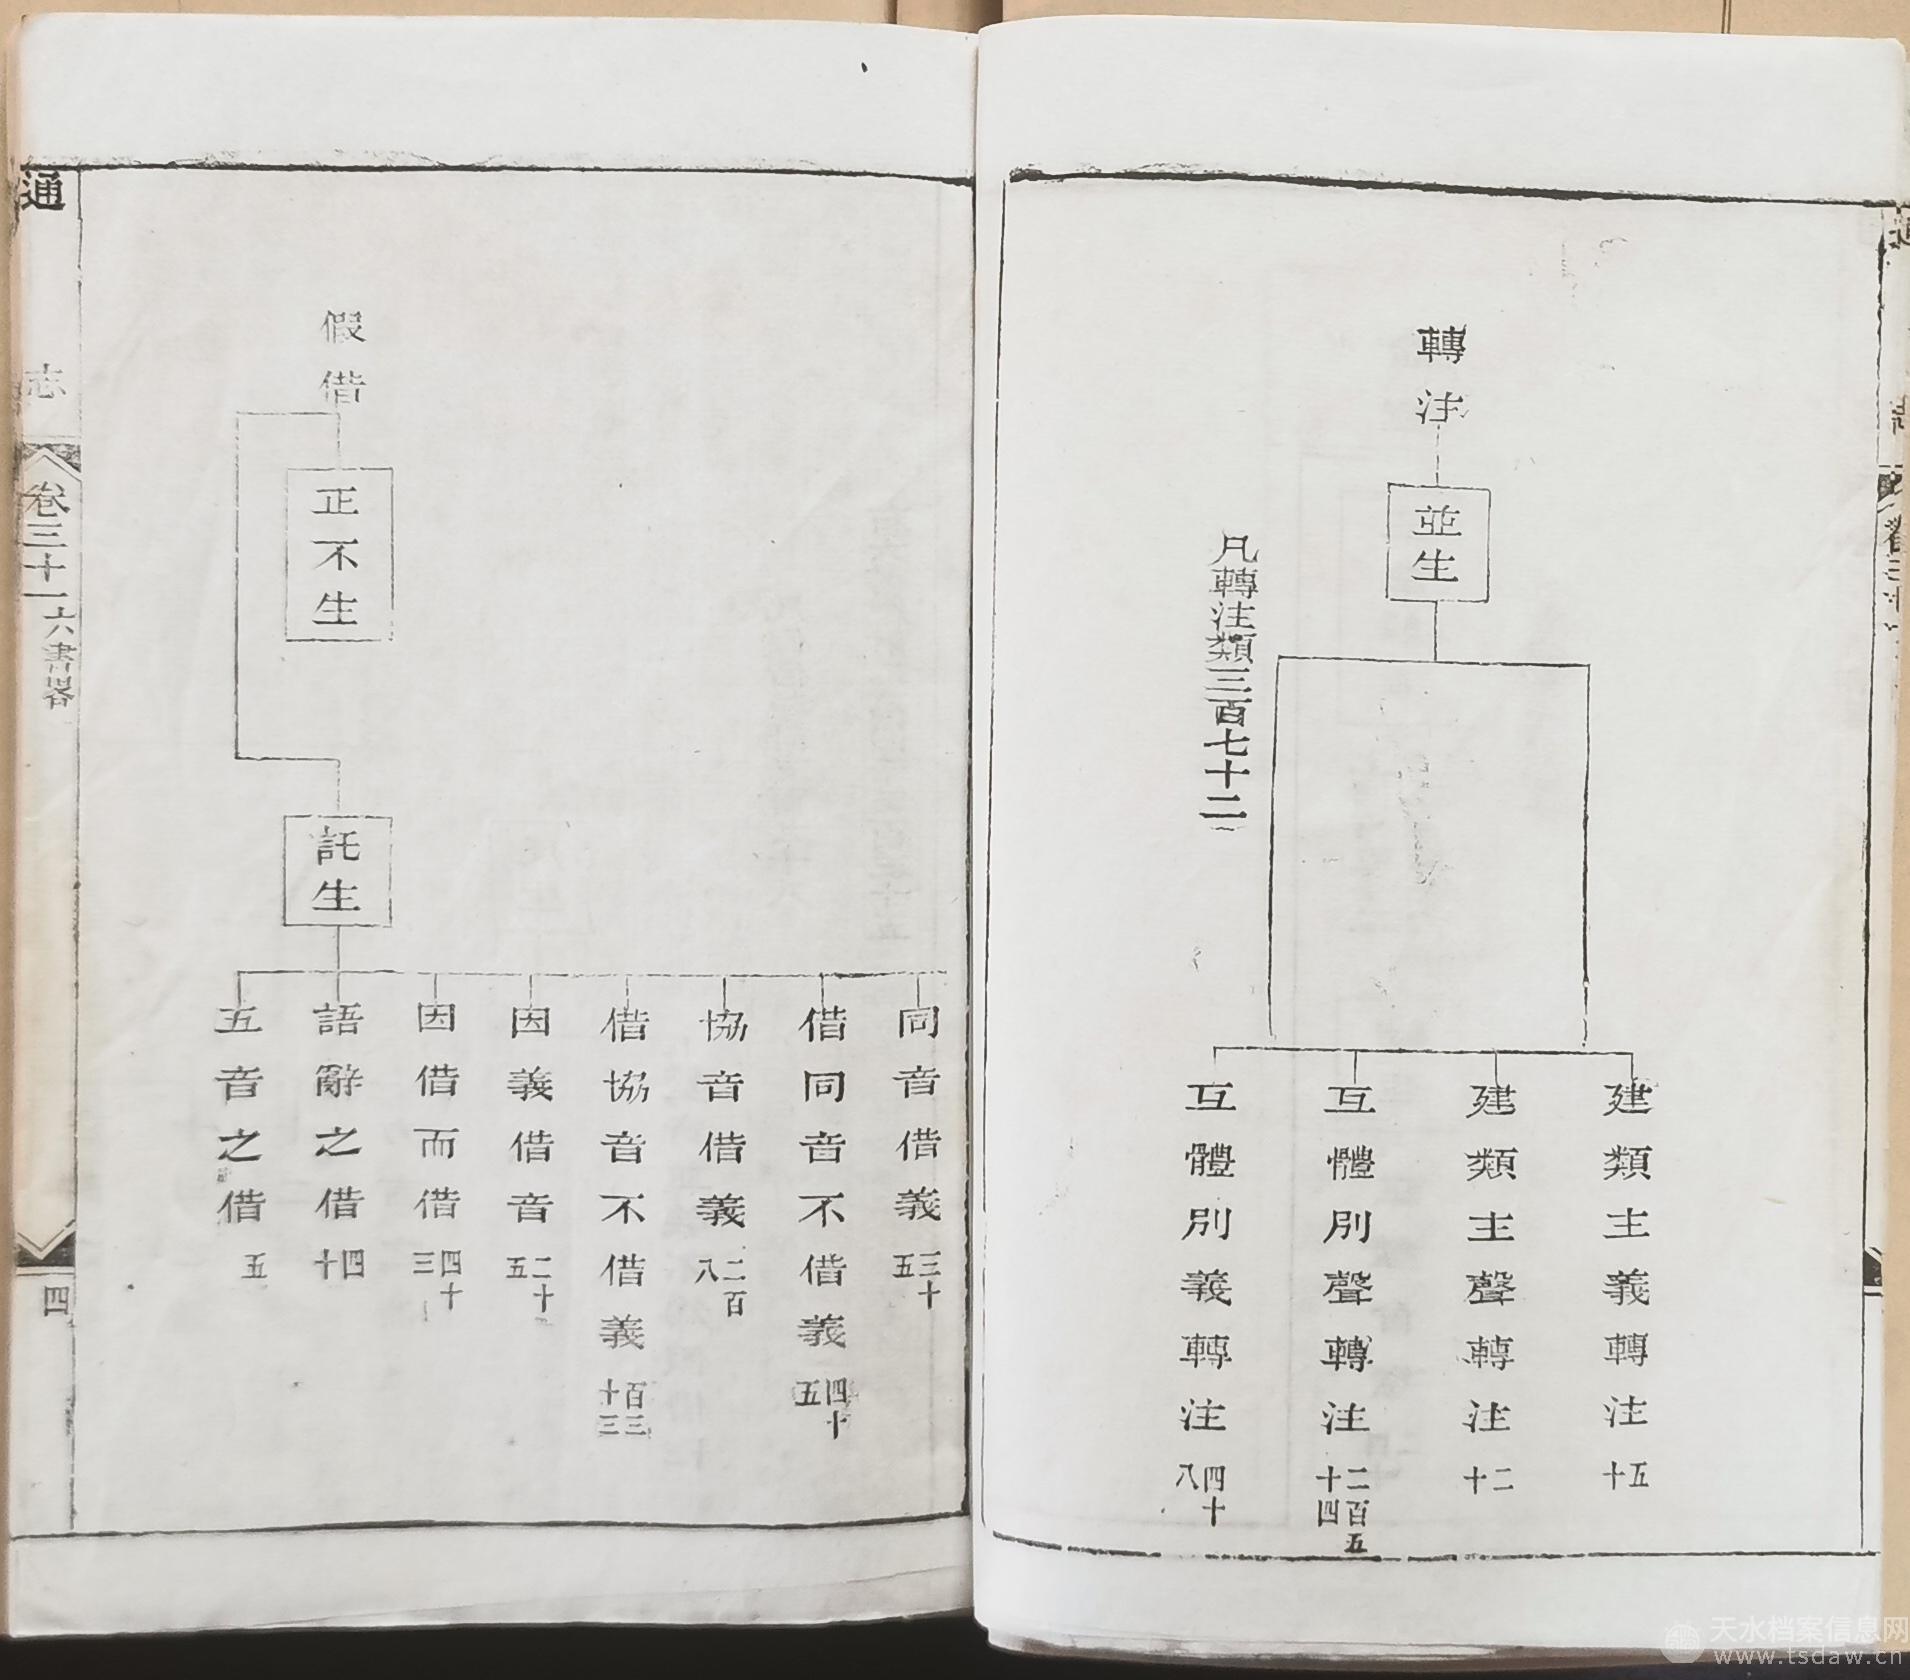 轉注
並生
建類主義轉注五十
建類主聲轉注二十
互體別聲轉注二百五十四
互體別義轉注四十八
凡轉注類三百七十二
假借
正不生
託生
同音借義三十五
借同音不借義四十五
協音借義二百八
借協音不借義百三十三
因義借音二十五
因借而借四十三
語辭之借四十
五音之借五
通志
卷三十一
六書畧
四
天水档案信息网
www.tsdaw.cn